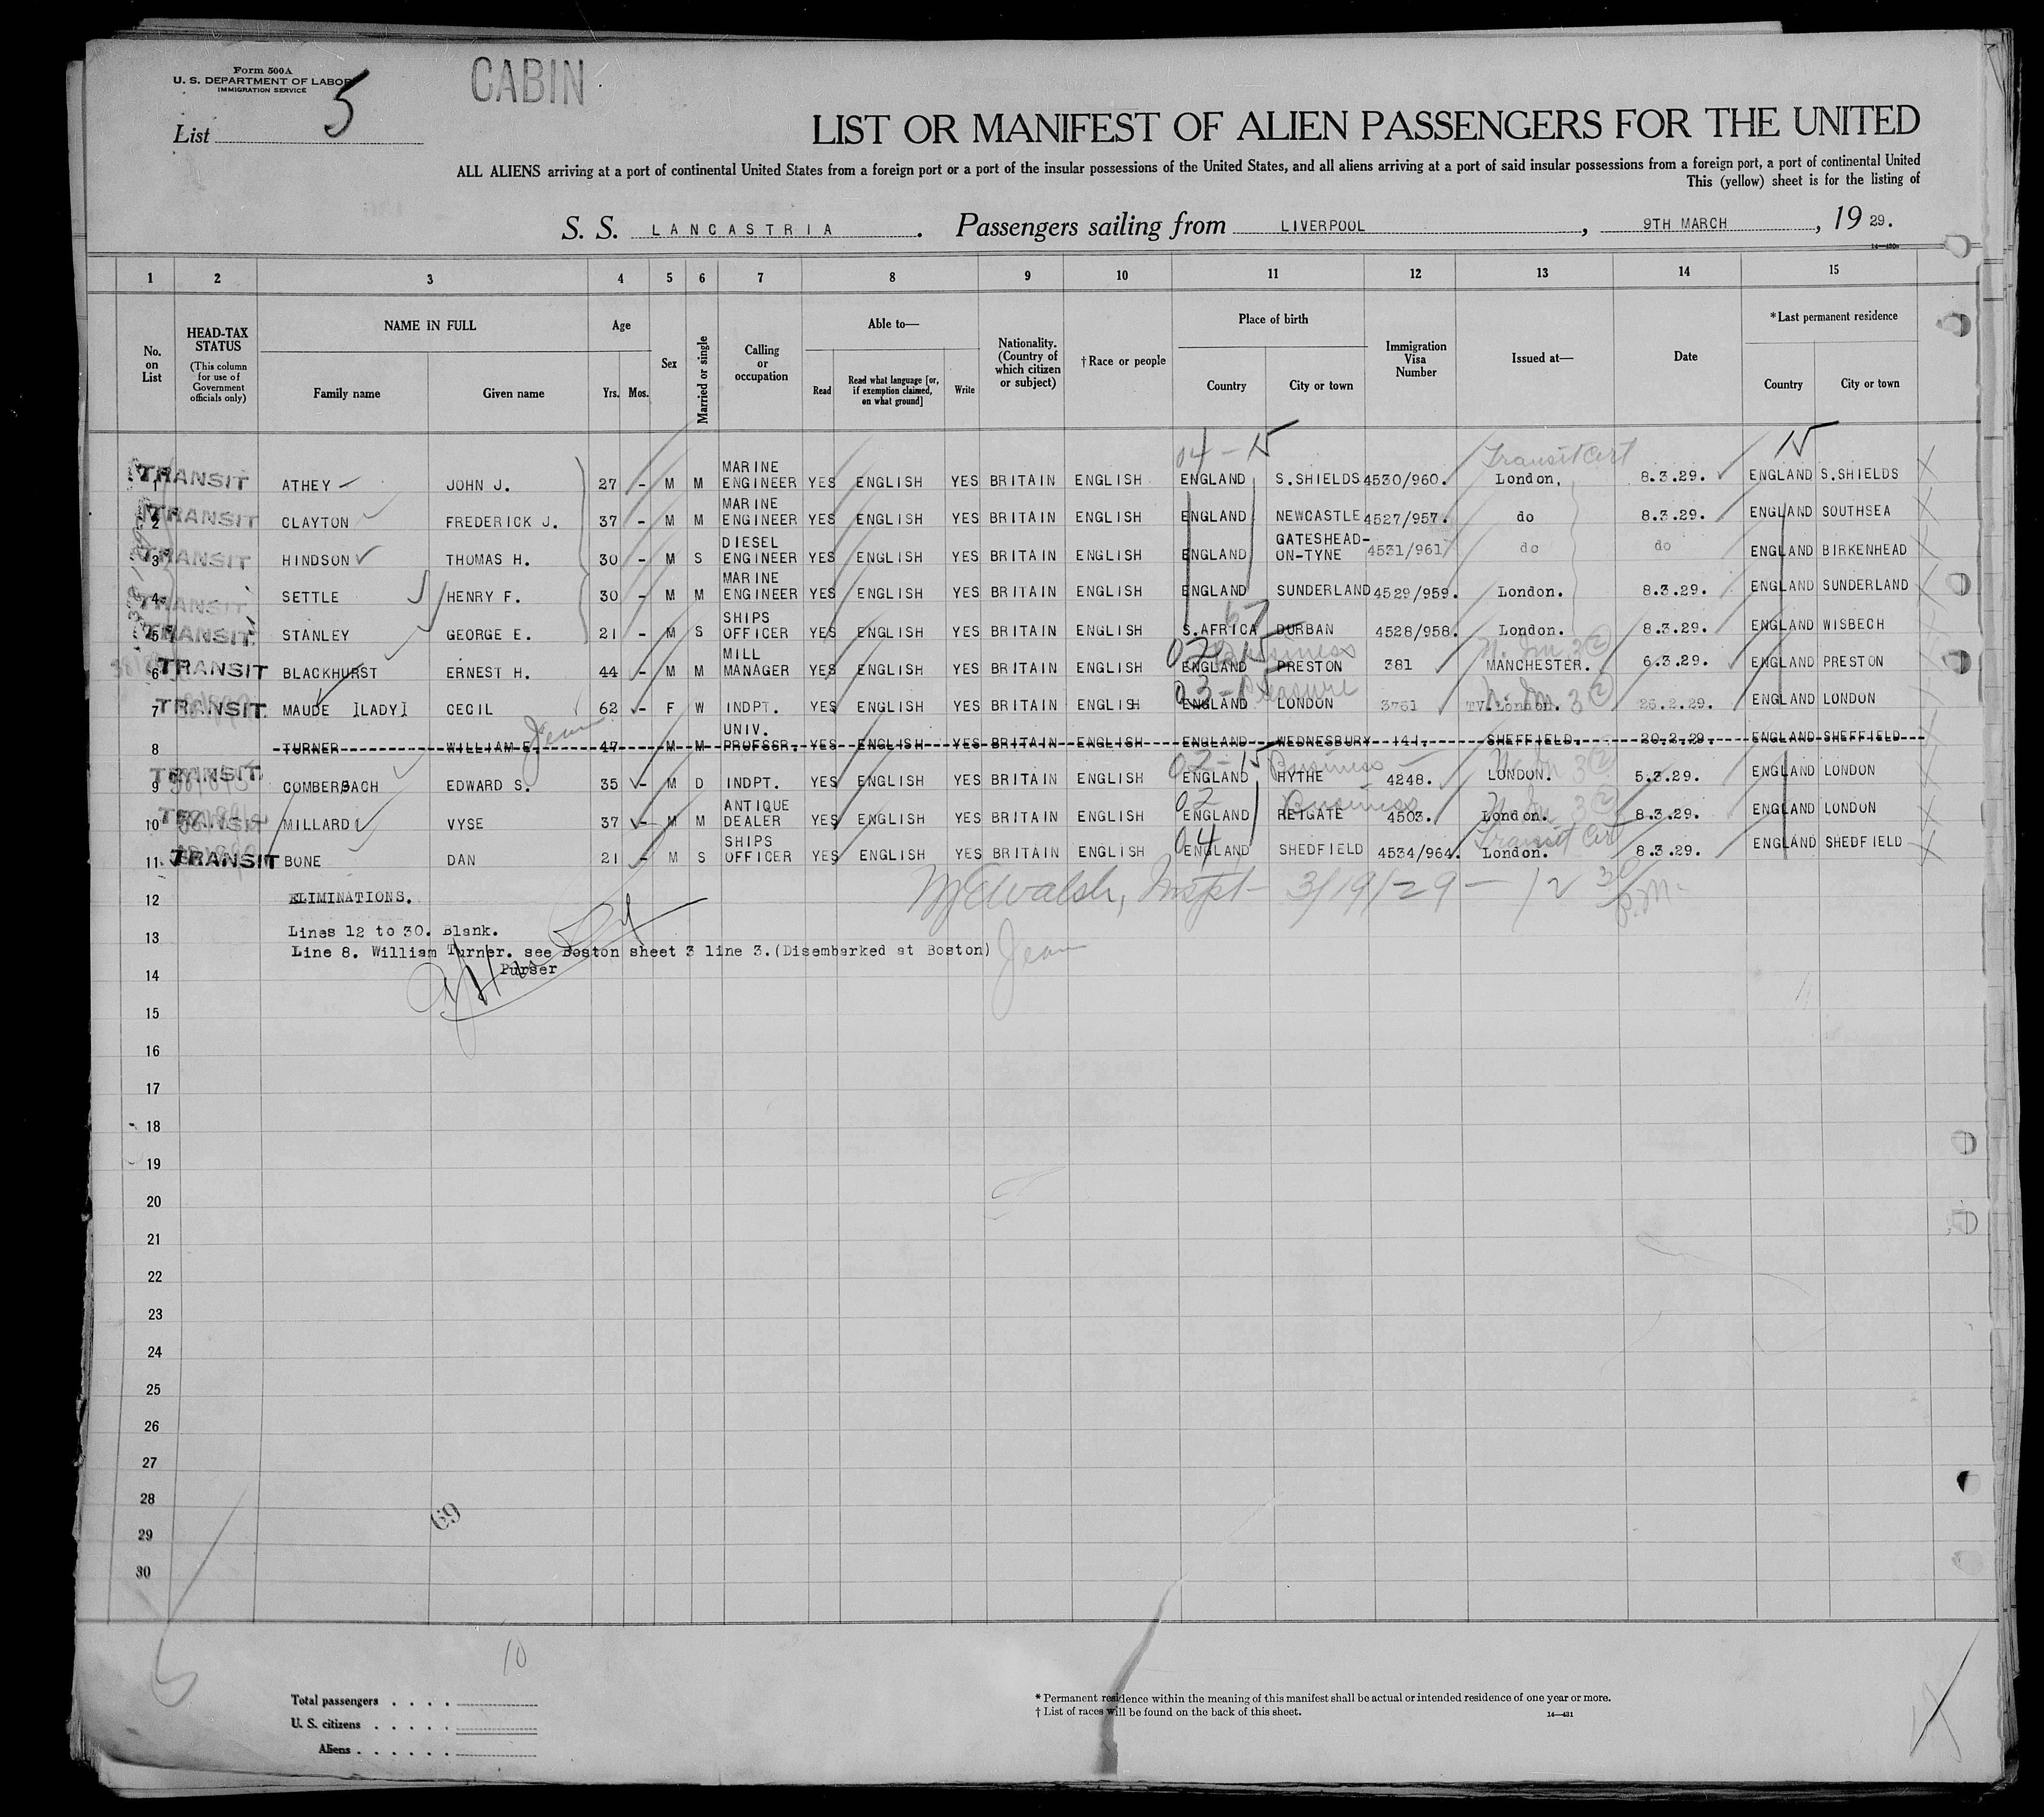 Form 500A
U. S. DEPARTMENT OF LABOR
IMMIGRATION SERVICE
CABIN
List 5
LIST OR MANIFEST OF ALIEN PASSENGERS FOR THE UNITED
ALL ALIENS arriving at a port of continental United States from a foreign port or a port of the insular possessions of the United States, and all aliens arriving at a port of said insular possessions from a foreign port, a port of continental United
This (yellow) sheet is for the listing of
S. S. LANCASTRIA. Passengers sailing from LIVERPOOL, 9TH MARCH, 19 29.
14—430a
1 2 3 4 5 6 7 8 9 10 11 12 13 14 15
No. on List
HEAD-TAX STATUS
(This column for use of Government officials only)
NAME IN FULL
Family name Given name
Age
Yrs. Mos.
Sex
Married or single
Calling or occupation
Able to—
Read
Read what language [or, if exemption claimed, on what ground]
Write
Nationality. (Country of which citizen or subject)
†Race or people
Place of birth
Country City or town
Immigration Visa Number
Issued at—
Date
*Last permanent residence
Country City or town
04-15 Transit Cert 15
TRANSIT 1 ATHEY JOHN J. 27 - M M MARINE ENGINEER YES ENGLISH YES BRITAIN ENGLISH ENGLAND S.SHIELDS 4530/960. London. 8.3.29. ENGLAND S.SHIELDS
TRANSIT 2 CLAYTON FREDERICK J. 37 - M M MARINE ENGINEER YES ENGLISH YES BRITAIN ENGLISH ENGLAND NEWCASTLE 4527/957. do 8.3.29. ENGLAND SOUTHSEA
TRANSIT 3 HINDSON THOMAS H. 30 - M S DIESEL ENGINEER YES ENGLISH YES BRITAIN ENGLISH ENGLAND GATESHEAD-ON-TYNE 4531/961 do do ENGLAND BIRKENHEAD
TRANSIT 4 SETTLE HENRY F. 30 - M M MARINE ENGINEER YES ENGLISH YES BRITAIN ENGLISH ENGLAND SUNDERLAND 4529/959. London. 8.3.29. ENGLAND SUNDERLAND
TRANSIT 5 STANLEY GEORGE E. 21 - M S SHIPS OFFICER YES ENGLISH YES BRITAIN ENGLISH S.AFRICA DURBAN 4528/958. London. 8.3.29. ENGLAND WISBECH
TRANSIT 6 BLACKHURST ERNEST H. 44 - M M MILL MANAGER YES ENGLISH YES BRITAIN ENGLISH 02 Business ENGLAND PRESTON 381 MANCHESTER. 6.3.29. ENGLAND PRESTON
TRANSIT 7 MAUDE [LADY] CECIL 62 - F W INDPT. YES ENGLISH YES BRITAIN ENGLISH 03-15 Pleasure ENGLAND LONDON 3761 TV.London. 25.2.29. ENGLAND LONDON
8 TURNER WILLIAM E. 47 - M M UNIV. PROFSSR. YES ENGLISH YES BRITAIN ENGLISH ENGLAND WEDNESBURY 141. SHEFFIELD. 20.2.29. ENGLAND SHEFFIELD
TRANSIT 9 COMBERBACH EDWARD S. 35 - M D INDPT. YES ENGLISH YES BRITAIN ENGLISH 02-15 Business ENGLAND HYTHE 4248. LONDON. 5.3.29. ENGLAND LONDON
TRANSIT 10 MILLARD VYSE 37 - M M ANTIQUE DEALER YES ENGLISH YES BRITAIN ENGLISH 02 Business ENGLAND REIGATE 4503. London. 8.3.29. ENGLAND LONDON
TRANSIT 11 BONE DAN 21 - M S SHIPS OFFICER YES ENGLISH YES BRITAIN ENGLISH 04 ENGLAND SHEDFIELD 4534/964. Transit Cert London. 8.3.29. ENGLAND SHEDFIELD
12 ELIMINATIONS.
Walsh, Inspt - 3/19/29 - 12 30 P.M.
13 Lines 12 to 30. Blank.
Line 8. William Turner. see Boston sheet 3 line 3.(Disembarked at Boston)
14 Purser
15
16
17
18
19
20
21
22
23
24
25
26
27
28
69
29
30
10
Total passengers . . . .
U. S. citizens . . . . .
Aliens . . . . . .
* Permanent residence within the meaning of this manifest shall be actual or intended residence of one year or more.
† List of races will be found on the back of this sheet.
14—431